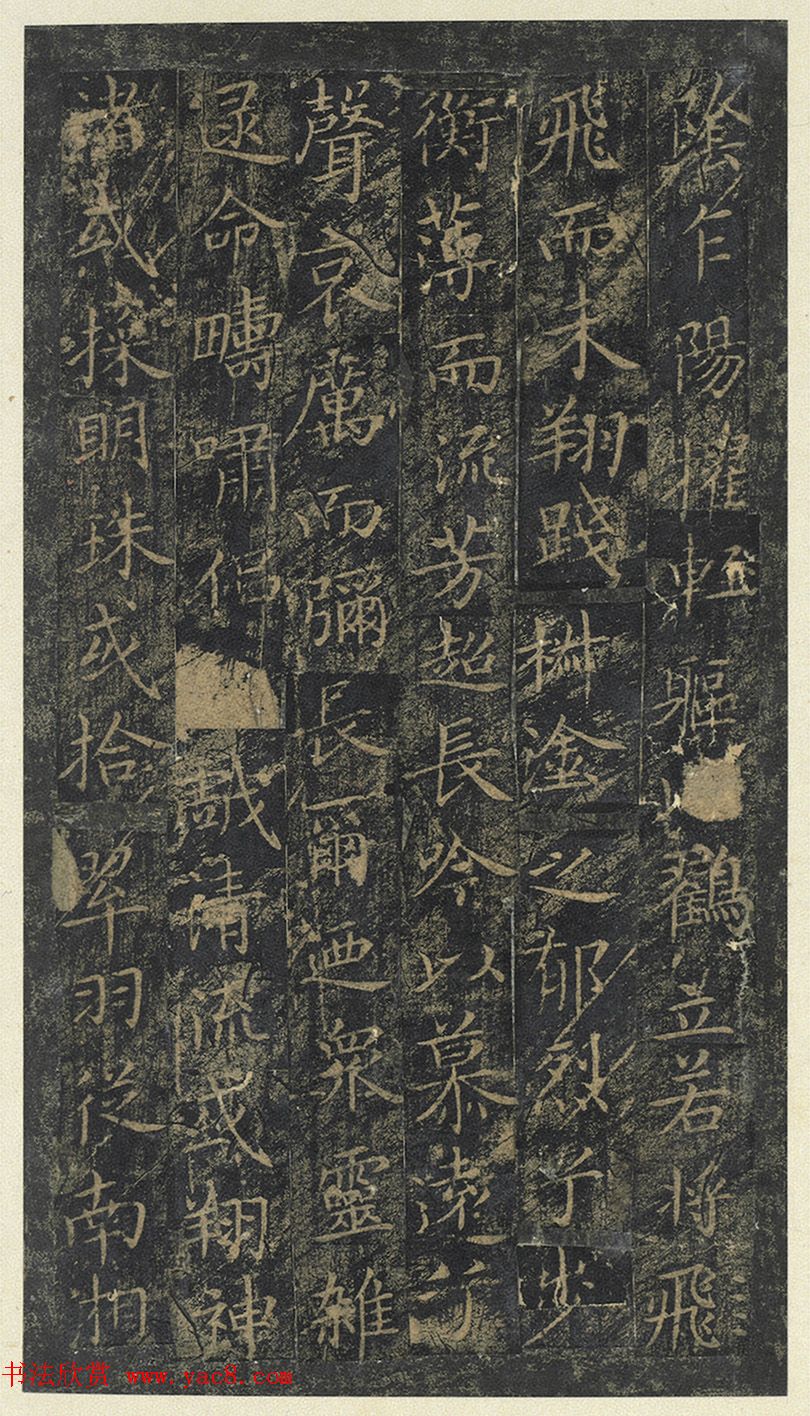 陰乍陽擢輕軀以鶴立若將飛
飛而未翔踐椒塗之郁烈兮步
衡薄而流芳超長吟以慕遠兮
聲哀厲而彌長爾迺眾靈雜
遝命疇嘯侶戲清流或翔神
渚或採明珠或拾翠羽從南湘
书法欣赏 www.yac8.com